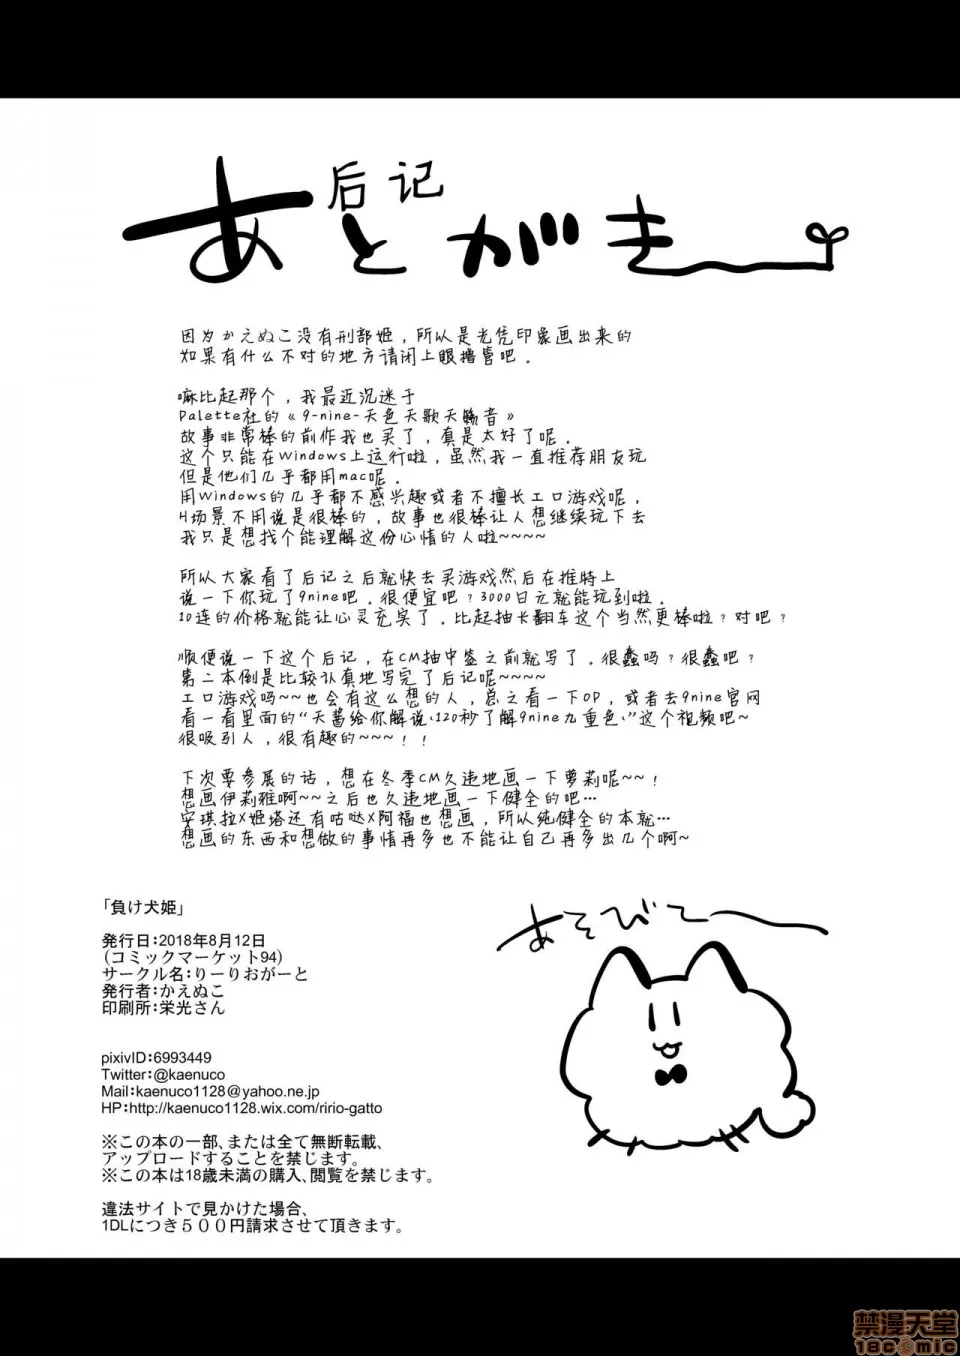 后记
あとがき
因为かえぬこ没有刑部姬，所以是光凭印象画出来的
如果有什么不对的地方请闭上眼撸管吧。
嘛比起那个，我最近沉迷于
Palette社的《9-nine-天色天歌天籁音》
故事非常棒的前作我也买了，真是太好了呢。
这个只能在Windows上运行啦，虽然我一直推荐朋友玩
但是他们几乎都用mac呢。
用Windows的几乎都不感兴趣或者不擅长工口游戏呢，
H场景不用说是很棒的，故事也很棒让人想继续玩下去
我只是想找个能理解这份心情的人啦~~~~
所以大家看了后记之后就快去买游戏然后在推特上
说一下你玩了9nine吧。很便宜吧？3000日元就能玩到啦。
10连的价格就能让心灵充实了。比起抽卡翻车这个当然更棒啦？对吧？
顺便说一下这个后记，在CM抽中签之前就写了。很蠢吗？很蠢吧？
第二本倒是比较认真地写完了后记呢~~~~
工口游戏吗~~也会有这么想的人，总之看一下OP，或者去9nine官网
看一看里面的“天酱给你解说、120秒了解9nine九重色”这个视频吧~
很吸引人，很有趣的~~~！！
下次要参展的话，想在冬季CM久违地画一下萝莉呢~~！
想画伊莉雅啊~~之后也久违地画一下健全的吧…
安琪拉X姬塔还有咕哒X阿福也想画，所以纯健全的本就…
想画的东西和想做的事情再多也不能让自己再多出几个啊~
「負け犬姫」
発行日：2018年8月12日
（コミックマーケット94）
サークル名：りーりおがーと
発行者：かえぬこ
印刷所：栄光さん
あそびて
pixivID：6993449
Twitter：@kaenuco
Mail：kaenuco1128@yahoo.ne.jp
HP：http://kaenuco1128.wix.com/ririo-gatto
※この本の一部、または全て無断転載、
アップロードすることを禁じます。
※この本は18歳未満の購入、閲覧を禁じます。
違法サイトで見かけた場合、
1DLにつき５００円請求させて頂きます。
禁漫天堂
18comic